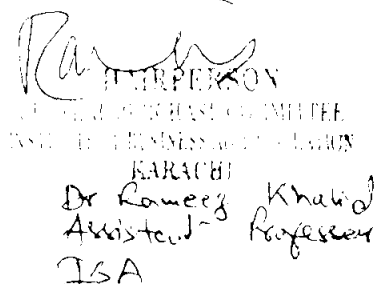 CHAIRPERSON
PURCHASE COMMITTEE
INSTITUTE OF BUSINESS ADMINISTRATION
KARACHI
Dr Rameez Khalid
Assistent Professor
IBA